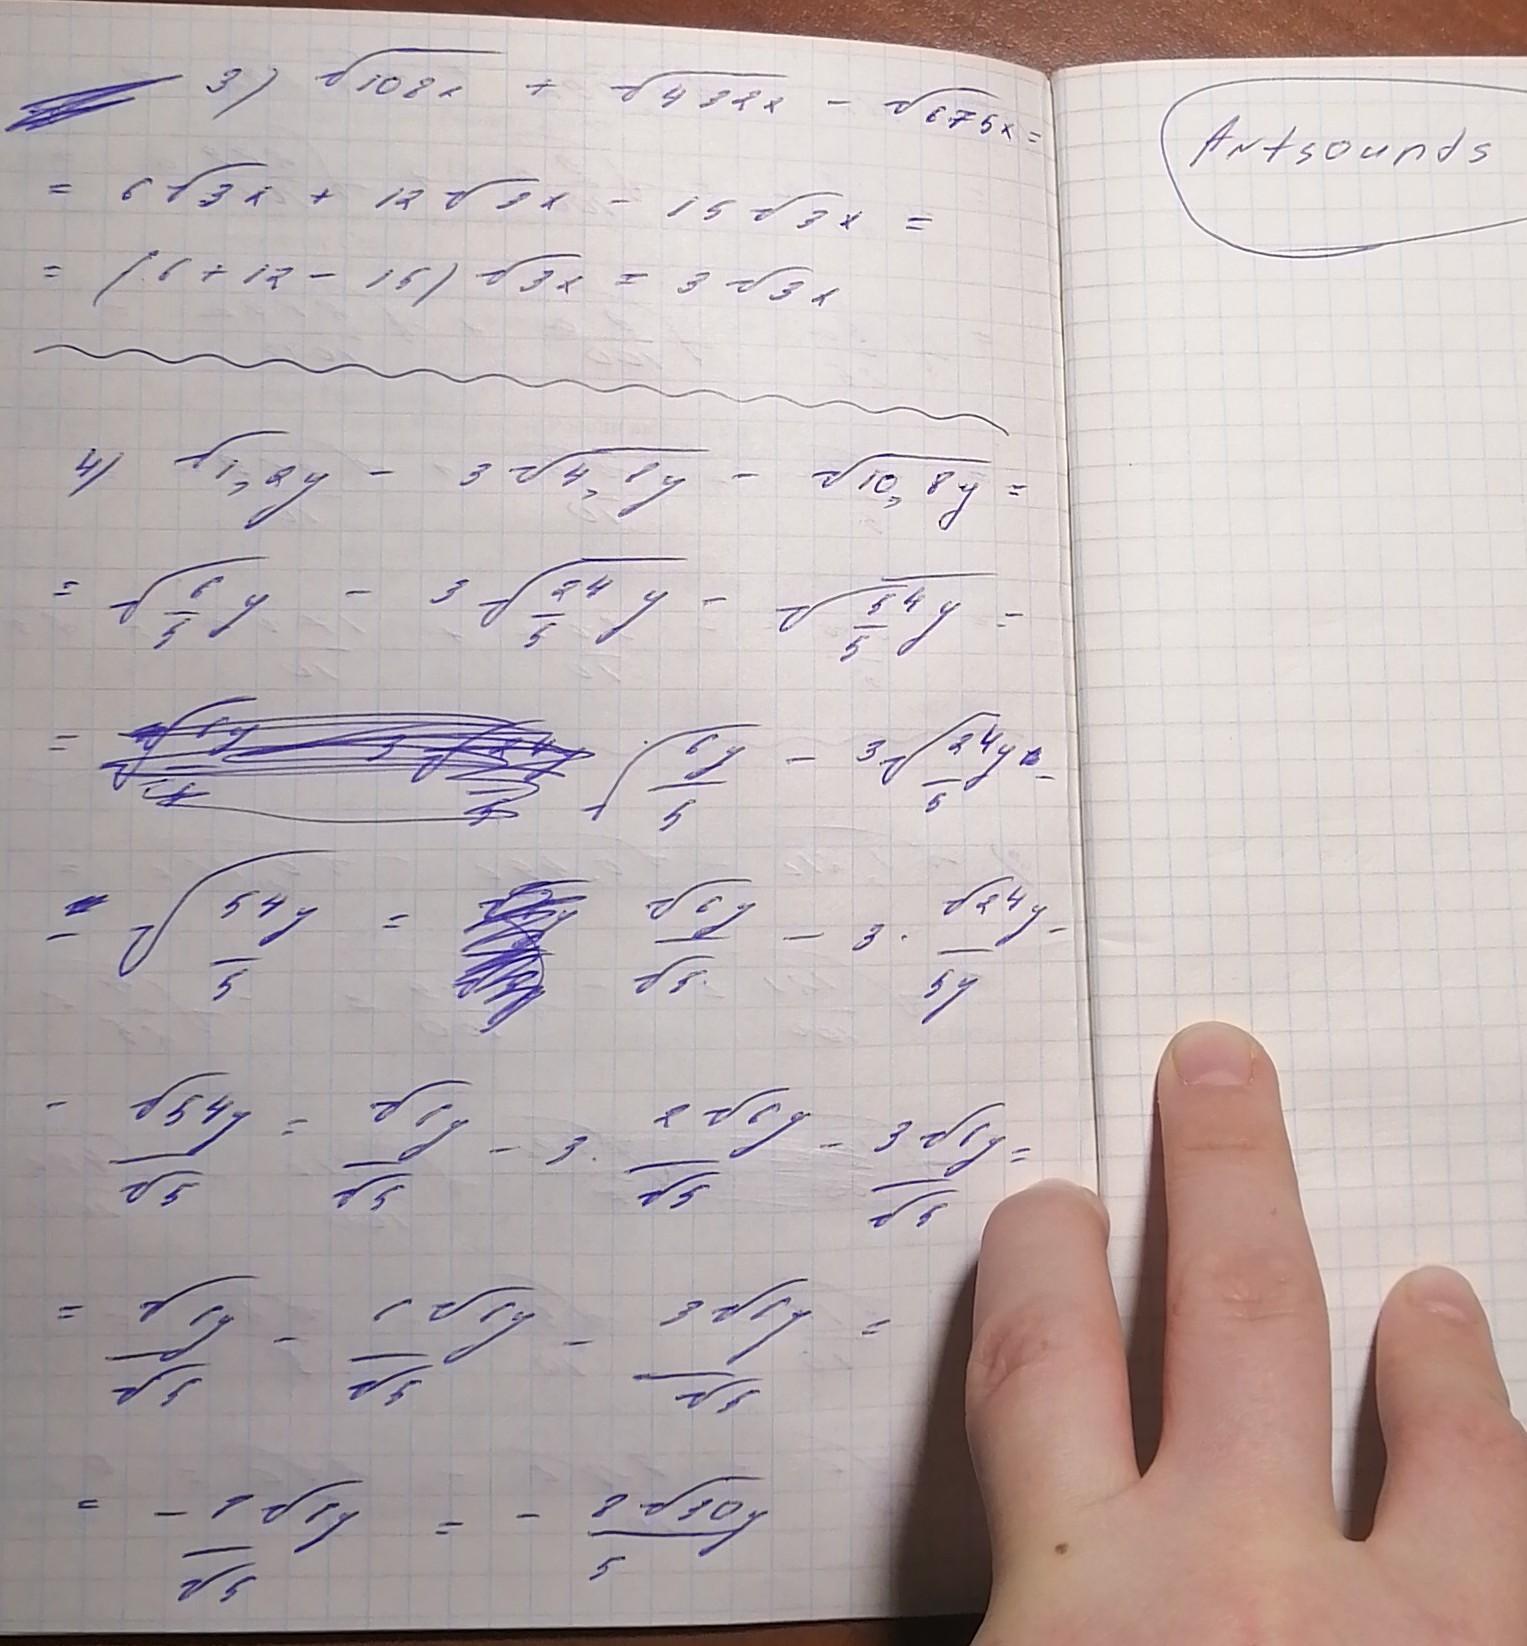 3) √108x + √432x - √675x =
= 6√3x + 12√3x - 15√3x =
= (6+12-15)√3x = 3√3x
4) √1,2y - 3√4,8y - √10,8y =
= √6/5 y - 3√24/5 y - √54/5 y =
= √6y/5 - 3√24y/5 -
- √54y/5 = √6y/√5 - 3 · √24y/5y -
- √54y/√5 = √6y/√5 - 3 · 2√6y/√5 - 3√6y/√5 =
= √6y/√5 - 6√6y/√5 - 3√6y/√5 =
= - 8√6y/√5 = - 8√30y/5
Artsounds